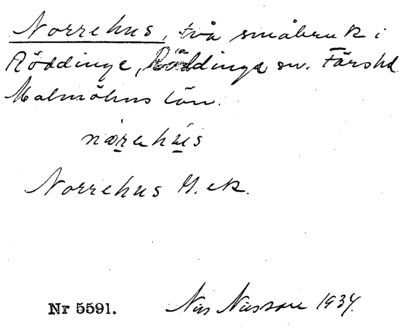 Norrehus, två småbruk i
Röddinge, Röddinge sn. Färshd
Malmöhus län.
nårehus
Norrehus G. ek.
Nr 5591.
Nils Nilsson 1934.